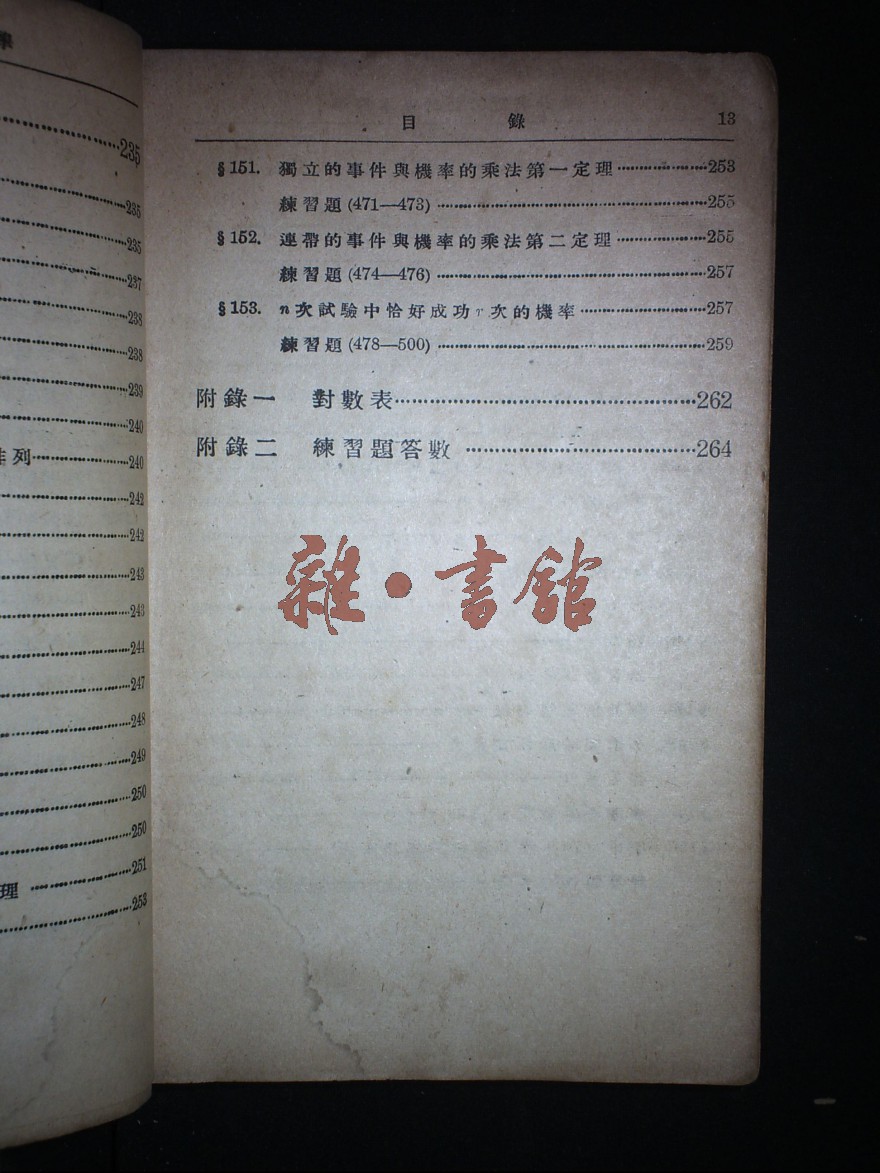 235
235
235
237
238
238
239
240
列……240
242
242
243
243
244
247
248
249
250
250
理……251
253
目錄 13
§151. 獨立的事件與機率的乘法第一定理……253
練習題(471—473)……255
§152. 連帶的事件與機率的乘法第二定理……255
練習題(474—476)……257
§153. n次試驗中恰好成功r次的機率……257
練習題(478—500)……259
附錄一 對數表……262
附錄二 練習題答數……264
雜·書館